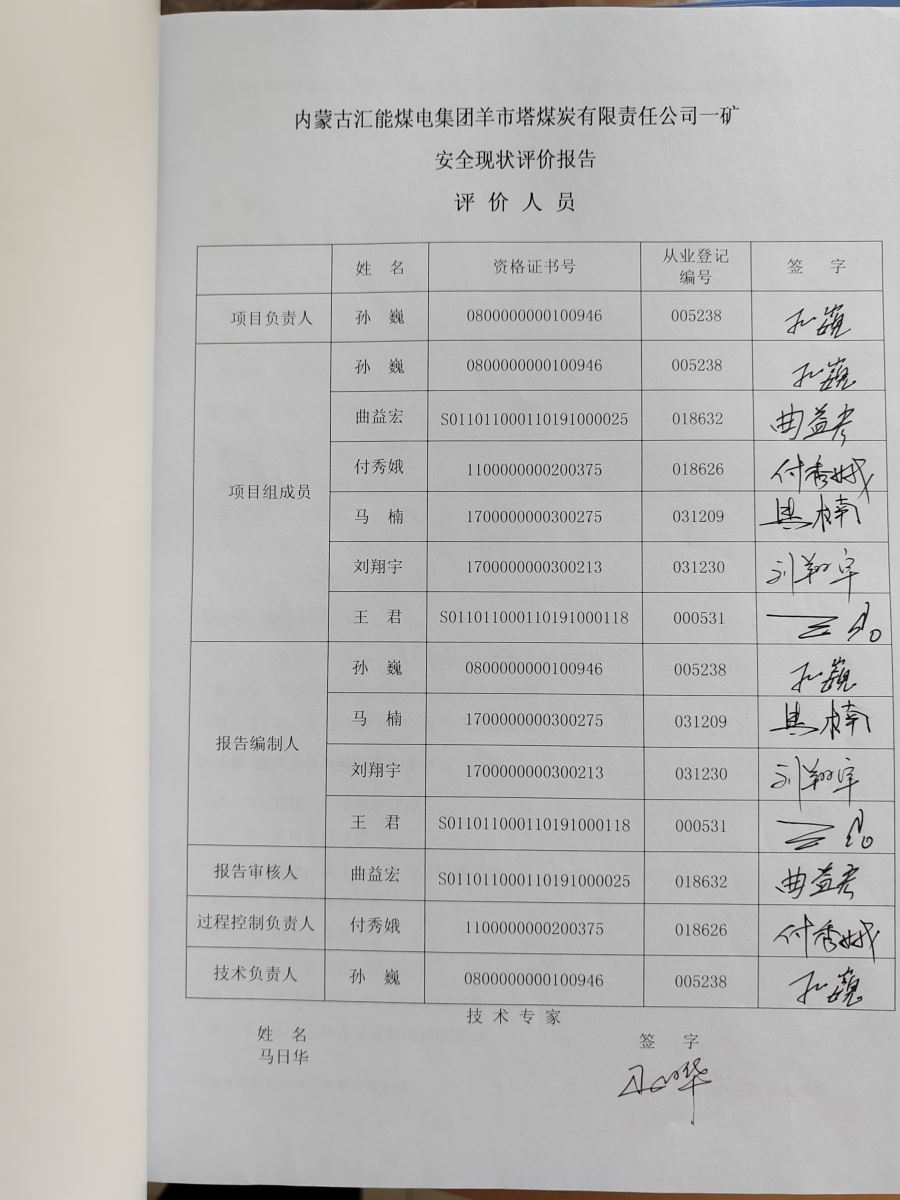 内蒙古汇能煤电集团羊市塔煤炭有限责任公司一矿
安全现状评价报告
评 价 人 员
姓 名 资格证书号 从业登记编号 签 字
项目负责人 孙 巍 0800000000100946 005238 孙巍
项目组成员 孙 巍 0800000000100946 005238 孙巍
曲益宏 S011011000110191000025 018632 曲益宏
付秀娥 1100000000200375 018626 付秀娥
马 楠 1700000000300275 031209 马楠
刘翔宇 1700000000300213 031230 刘翔宇
王 君 S011011000110191000118 000531 王君
报告编制人 孙 巍 0800000000100946 005238 孙巍
马 楠 1700000000300275 031209 马楠
刘翔宇 1700000000300213 031230 刘翔宇
王 君 S011011000110191000118 000531 王君
报告审核人 曲益宏 S011011000110191000025 018632 曲益宏
过程控制负责人 付秀娥 1100000000200375 018626 付秀娥
技术负责人 孙 巍 0800000000100946 005238 孙巍
技 术 专 家
姓 名 签 字
马日华 马日华